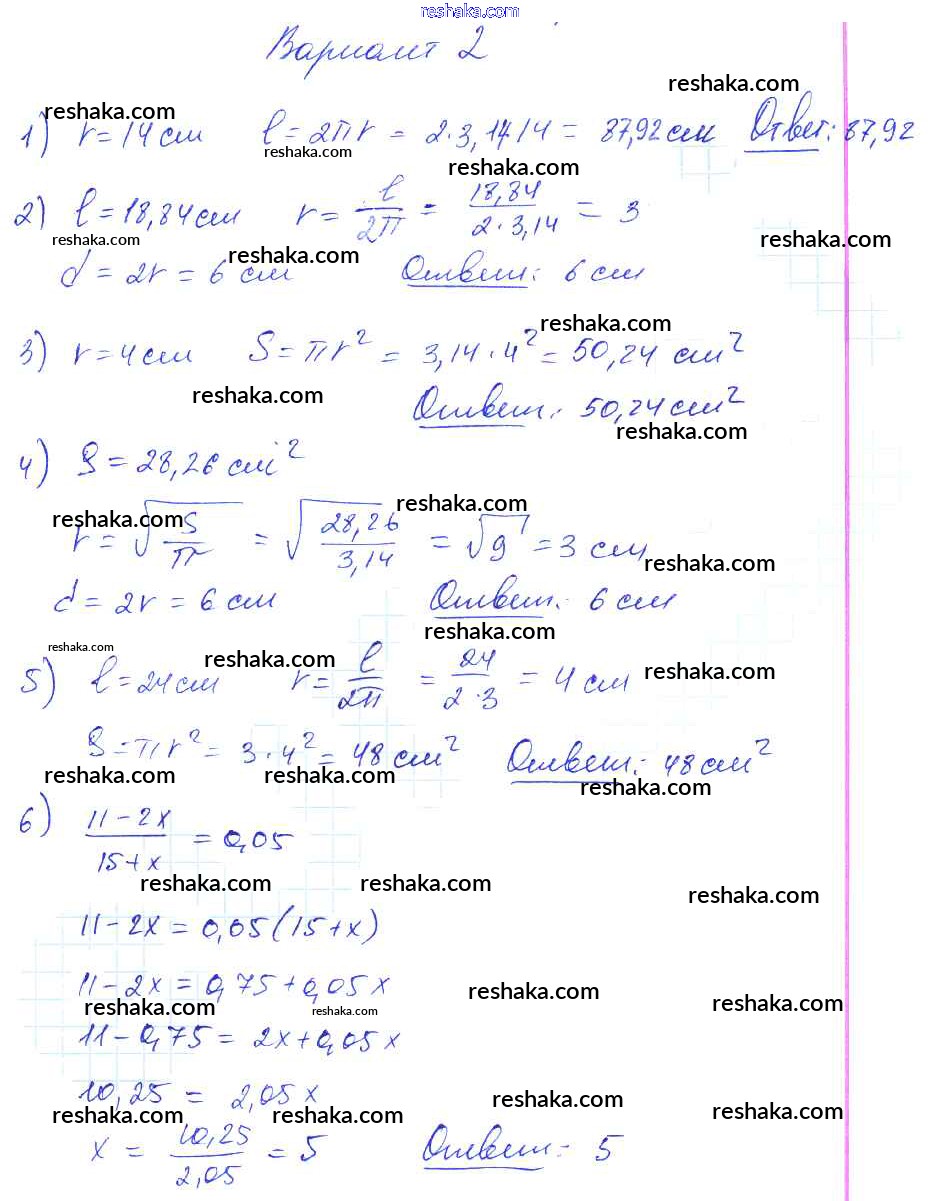 reshaka.com
Вариант 2
reshaka.com
reshaka.com
1) r = 14 см l = 2πr = 2·3,14·14 = 87,92 см Ответ: 87,92
reshaka.com
reshaka.com
2) l = 18,84 см r = l/2π = 18,84/2·3,14 = 3
reshaka.com
reshaka.com
reshaka.com
d = 2r = 6 см Ответ: 6 см
reshaka.com
3) r = 4 см S = πr² = 3,14·4² = 50,24 см²
reshaka.com
Ответ: 50,24 см²
reshaka.com
4) S = 28,26 см²
reshaka.com
reshaka.com
r = √S/π = √28,26/3,14 = √9 = 3 см
reshaka.com
d = 2r = 6 см Ответ: 6 см
reshaka.com
reshaka.com
reshaka.com
reshaka.com
5) l = 24 см r = l/2π = 24/2·3 = 4 см
S = πr² = 3·4² = 48 см² Ответ: 48 см²
reshaka.com
reshaka.com
reshaka.com
6) 11-2x/15+x = 0,05
reshaka.com
reshaka.com
reshaka.com
11-2x = 0,05(15+x)
11-2x = 0,75+0,05x
reshaka.com
reshaka.com
reshaka.com
reshaka.com
11-0,75 = 2x+0,05x
10,25 = 2,05x
reshaka.com
reshaka.com
reshaka.com
reshaka.com
x = 10,25/2,05 = 5 Ответ: 5